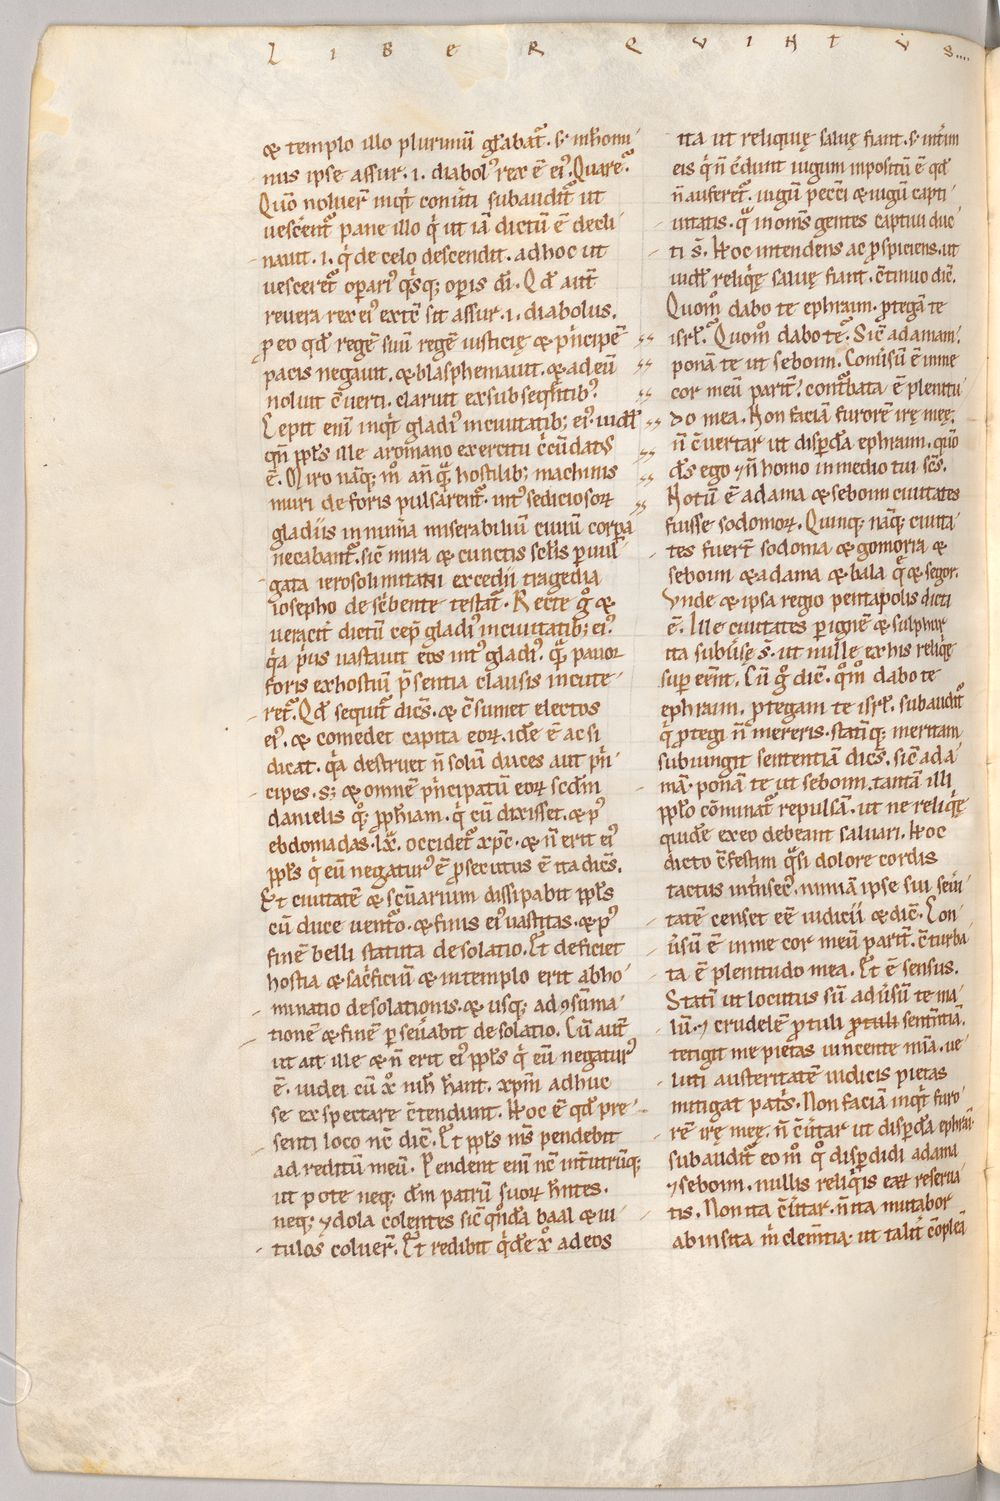 LIBER QUINTVS....
& templo illo plurimū gl̄abat᷑. s; inh̄omi
nus ipse assur .i. diabol᷒ rex ē ei᷒. Quare.᷑
Quō noluer̄ inqͥt conuͥti subaudit᷑ ut
uescent᷑ pane illo qͥ ut iā dictū ē decli
nauit .i. qͥ de celo descendit. ad hoc ut
uesceret᷑ operari᷒ qͥsq; operis dī. Qd̄ aut̄
reuera rex ei᷒ exte͞ sit assur .i. diabolus.
ꝓ eo qd̄ regē suū regē iusticię & pͥncipē
pacis negauit. & blasphemauit. & ad eū
noluit c̄uerti. claruit ex subseqn̄tib᷒.
Cepit eni᷒ inqͥt gladi᷒ in ciuitatib; ei᷒. uidꝫ
qn̄ ppl̄s ille a romano exercitu cͥcūdat᷒
ē. Miro nāq; m̊ an̄ qᷓ hostilib; machinis
muri de foris pulsarent᷑. int᷒ sediciosoꝝ
gladiis innum̄a miserabiliū ciuiū corp̄a
necabant᷑. sic̄ mira & cunctis sclīs puul
gata ierosolimitani excedii tragedia
iosepho describente testat᷑. Recte g̊ &
ueracit̄ dictū cep̄ gladi᷒ in ciuitatib; ei᷒.
qͥa pͥus uastauit eos int᷒ gladi᷒. qᷓ pauor
foris ex hostiū p̄sentia clausis incute
ret᷑. Qd̄ sequit᷑ dicēs. & c̄sumet electos
ei᷒. & comedet capita eoꝝ. idē ē ac si
dicat. qͥa destruet n̄ solū duces aut pͥn
cipes. s; & omnē pͥncipatū eoꝝ scd̄m
danielis qq; ꝓph̄iam. qͥ cū dixisset. & p᷒
ebdomadas .lx̄. occidet᷑ xp̄c. & n̄ erit ei᷒
ppl̄s qͥ eū negatur᷒ ē ꝓsecutus ē ita dicēs.
Et ciuitatē & sc̄uarium dissipabit ppl̄s
cū duce uent᷒o. & finis ei᷒ uastitas. & p᷒
finē belli statuta desolatio. Et deficiet
hostia & sacͥficiū & in templo erit abho
minatio desolationis. & usq; ad ꝯsūma
tionē & finē ꝑseu᷑abit desolatio. Cū aut̄
ut ait ille & n̄ erit ei᷒ ppl̄s qͥ eū negatur᷒
ē. iudei cū x̊ nih̄ hant. xpm̄ adhuc
se exspectare c̄tendunt. Hoc ē qd̄ pre
senti loco nc̄ dic̄. Et ppl̄s ms̄ pendebit
ad reditū meū. Pendent eni᷒ nc̄ int᷑ utrūq;
ut pote neq; dm̄ patrū suoꝝ hn̄tes.
neq; ydola colentes sic̄ qn̄dā baal & ui
tulos coluer̄. Et redibit qͥdē x̊ ad eos
ita ut reliquię saluę fiant. s; intͥm
eis qͥ n̄ c̄dunt iugum inpositū ē qd̄
n̄ auferet᷑. iugū pecc̄i & iugū capti
uitatis. qᷓ in oms̄ gentes captiui duc
ti s̄. Hoc intendens ac ꝓspiciens. ut
uidꝫ reliqͥę saluę fiant. c̄tinuo dic̄.
Quom̊ dabo te ephraim. ꝓtegā te
isrl̄.᷑ Quom̊ dabo te.᷑ Sic̄ adamam.
ponā te ut seboim. Conuͥsū ē in me
cor meū parit̄. cont᷒bata ē plenitu
do mea. Non faciā furorē irę meę.
n̄ c̄uertar ut disperdā ephraim. quō
ds̄ ego ⁊ n̄ homo in medio tui sc̄s.
Notū ē adama & seboim ciuitates
fuisse sodomoꝝ. Quinq; nāq; ciuita
tes fuert̄ sodoma & gomorra &
seboim & adama & bala qͣ̄ & segor.
Vnde & ipsa regio pentapolis dicti
ē. Ille ciuitates ꝑ ignē & sulphur
ita subuͥsę s̄. ut nullę ex his reliqͥę
super eēnt. Cū g̊ dic̄. qͦm̊ dabo te
ephraim. ꝓtegam te isrl̄. subaudit᷑
qͥ ꝓtegi n̄ mereris. statīq; meritam
subiungit sententiā dicēs. sic̄ ada
mā. ponā te ut seboim. tantā illi
ppl̄o cōminat᷑ repulsā. ut ne reliqͥę
quidē ex eo debeant saluari. Hoc
dicto c̄festim qͣsi dolore cordis
tactus intͥnsec᷒. nimiā ipse sui seuͥi
tatē censet eē iudicii & dic̄. Con
uͥsū ē in me cor meū parit̄. c̄turba
ta ē plenitudo mea. Et ē sensus.
Statī ut locutus sū aduͥsū te ma
lū. ⁊ crudelē ꝓtuli ꝓtuli sententiā.
tetigit me pietas uincente mīa. ue
luti austeritatē iudicis pietas
mitigat patͥs. Non faciā inqͥt furo
rē irę meę. n̄ c̄uͥtar ut disperdā ephrai
subaudit᷑ eo m̊ qͦ disperdidi adama
⁊ seboim. nullis reliqͥis eaꝝ reserua
tis. Non ita c̄uͥtar. n̄ ita mutabor
ab insita m̊ clem̄tia. ut talit̄ c̄pleā